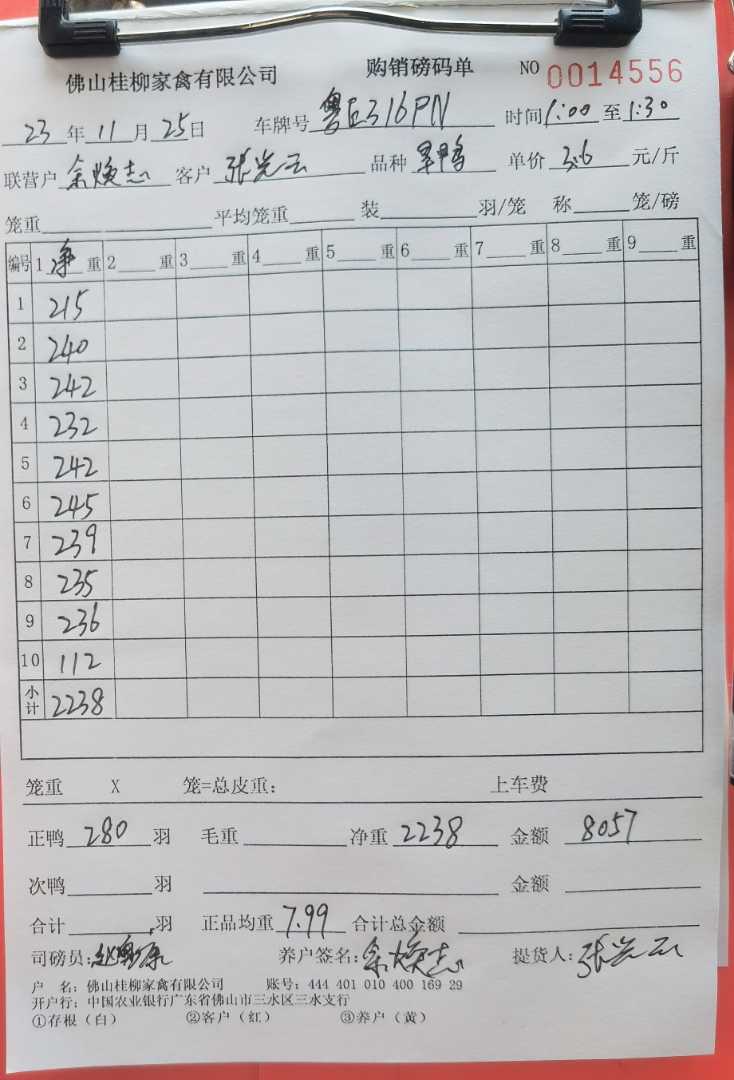 佛山桂柳家禽有限公司 购销磅码单 NO 0014556
23年11月25日 车牌号 粤E316PN 时间1:00至1:30
联营户 余焕志 客户 张光云 品种 单价 3.6 元/斤
笼重 平均笼重 装 羽/笼 称 笼/磅
编号 1净重 2 重 3 重 4 重 5 重 6 重 7 重 8 重 9 重
1 215
2 240
3 242
4 232
5 242
6 245
7 239
8 235
9 236
10 112
小计 2238
笼重 X 笼=总皮重: 上车费
正鸭 280 羽 毛重 净重 2238 金额 8057
次鸭 羽 金额
合计 羽 正品均重 7.99 合计总金额
司磅员: 养户签名:余焕志 提货人:张光云
户 名:佛山桂柳家禽有限公司 账号:444 401 010 400 169 29
开户行:中国农业银行广东省佛山市三水区三水支行
①存根(白) ②客户(红) ③养户(黄)